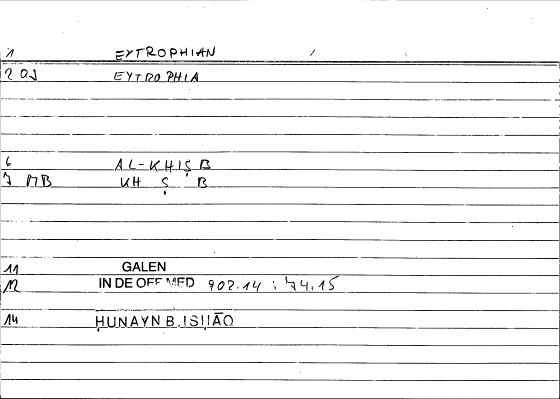 1 EYTROPHIAN
2 OJ EYTROPHIA
6 AL-KHIṢB
7 MB KH Ṣ B
11 GALEN
12 IN DE OFF MED 902.14 : 74.15
14 ḤUNAYN B. ISḤĀQ